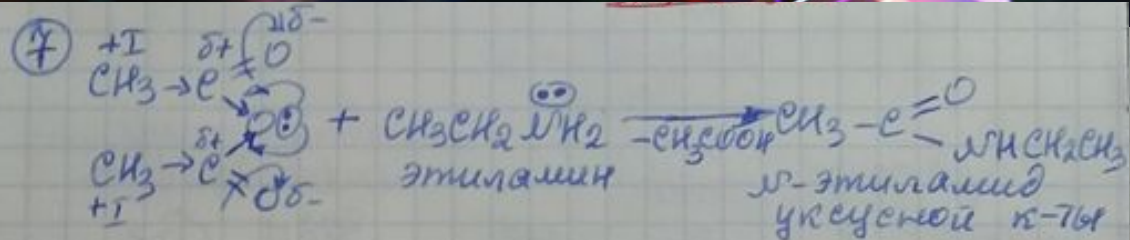 7
+I δ+ O δ-
CH3 → C
O + CH3CH2NH2 → CH3 - C = O
δ+ -CH3COOH
CH3 → C NHCH2CH3
+I O δ-
этиламин N-этиламид
уксусной к-ты